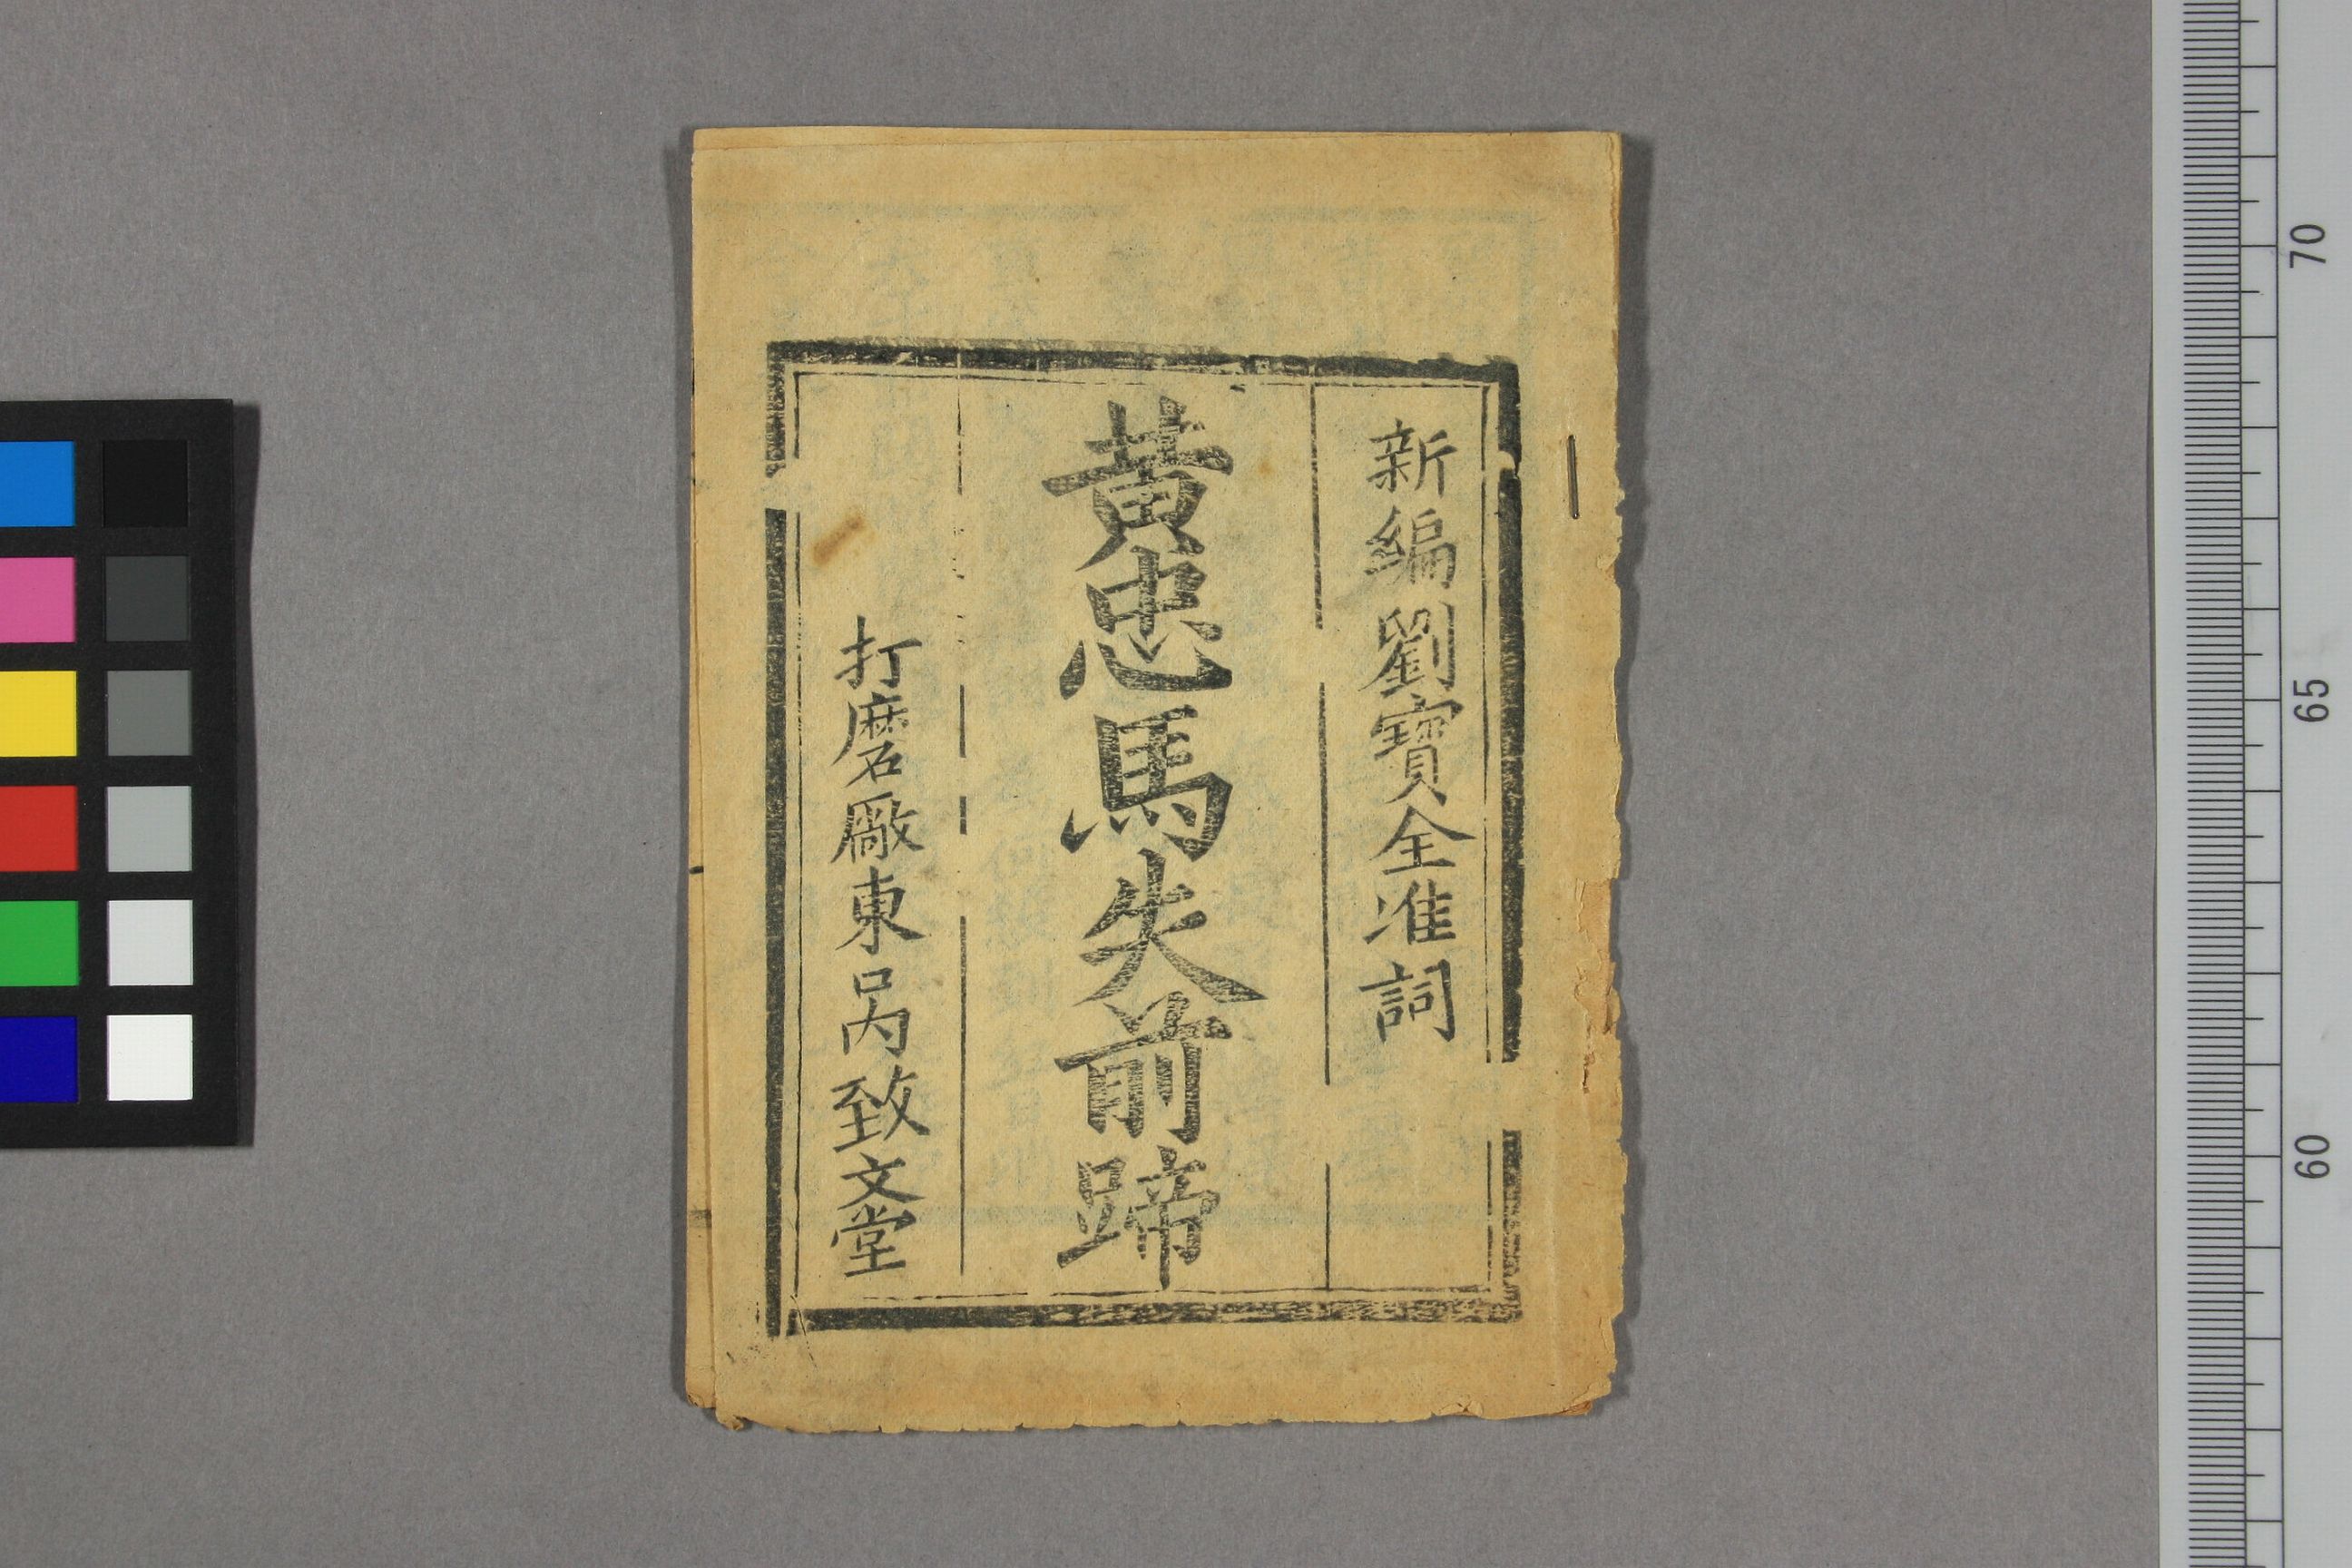 新編劉寶全准詞
黃忠馬失前蹄
打磨廠東口內致文堂
70
65
60